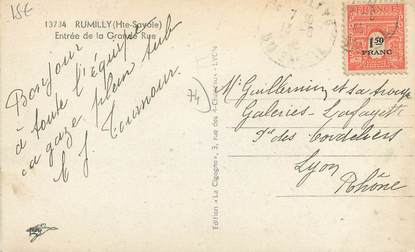 15€
13734 RUMILLY (Hte-Savoie)
Entrée de la Grande Rue
Bonjour
à toute l'équipe
ça gaze plein tube
J. Tournour.
74
Edition « La Cigogne », 3, rue des 4-Chapeaux - LYON
FRANCE
1F50
FRANC
Mr Guillermin et sa troupe
Galeries Lafayette
Pl. des Cordeliers
Lyon
Rhône